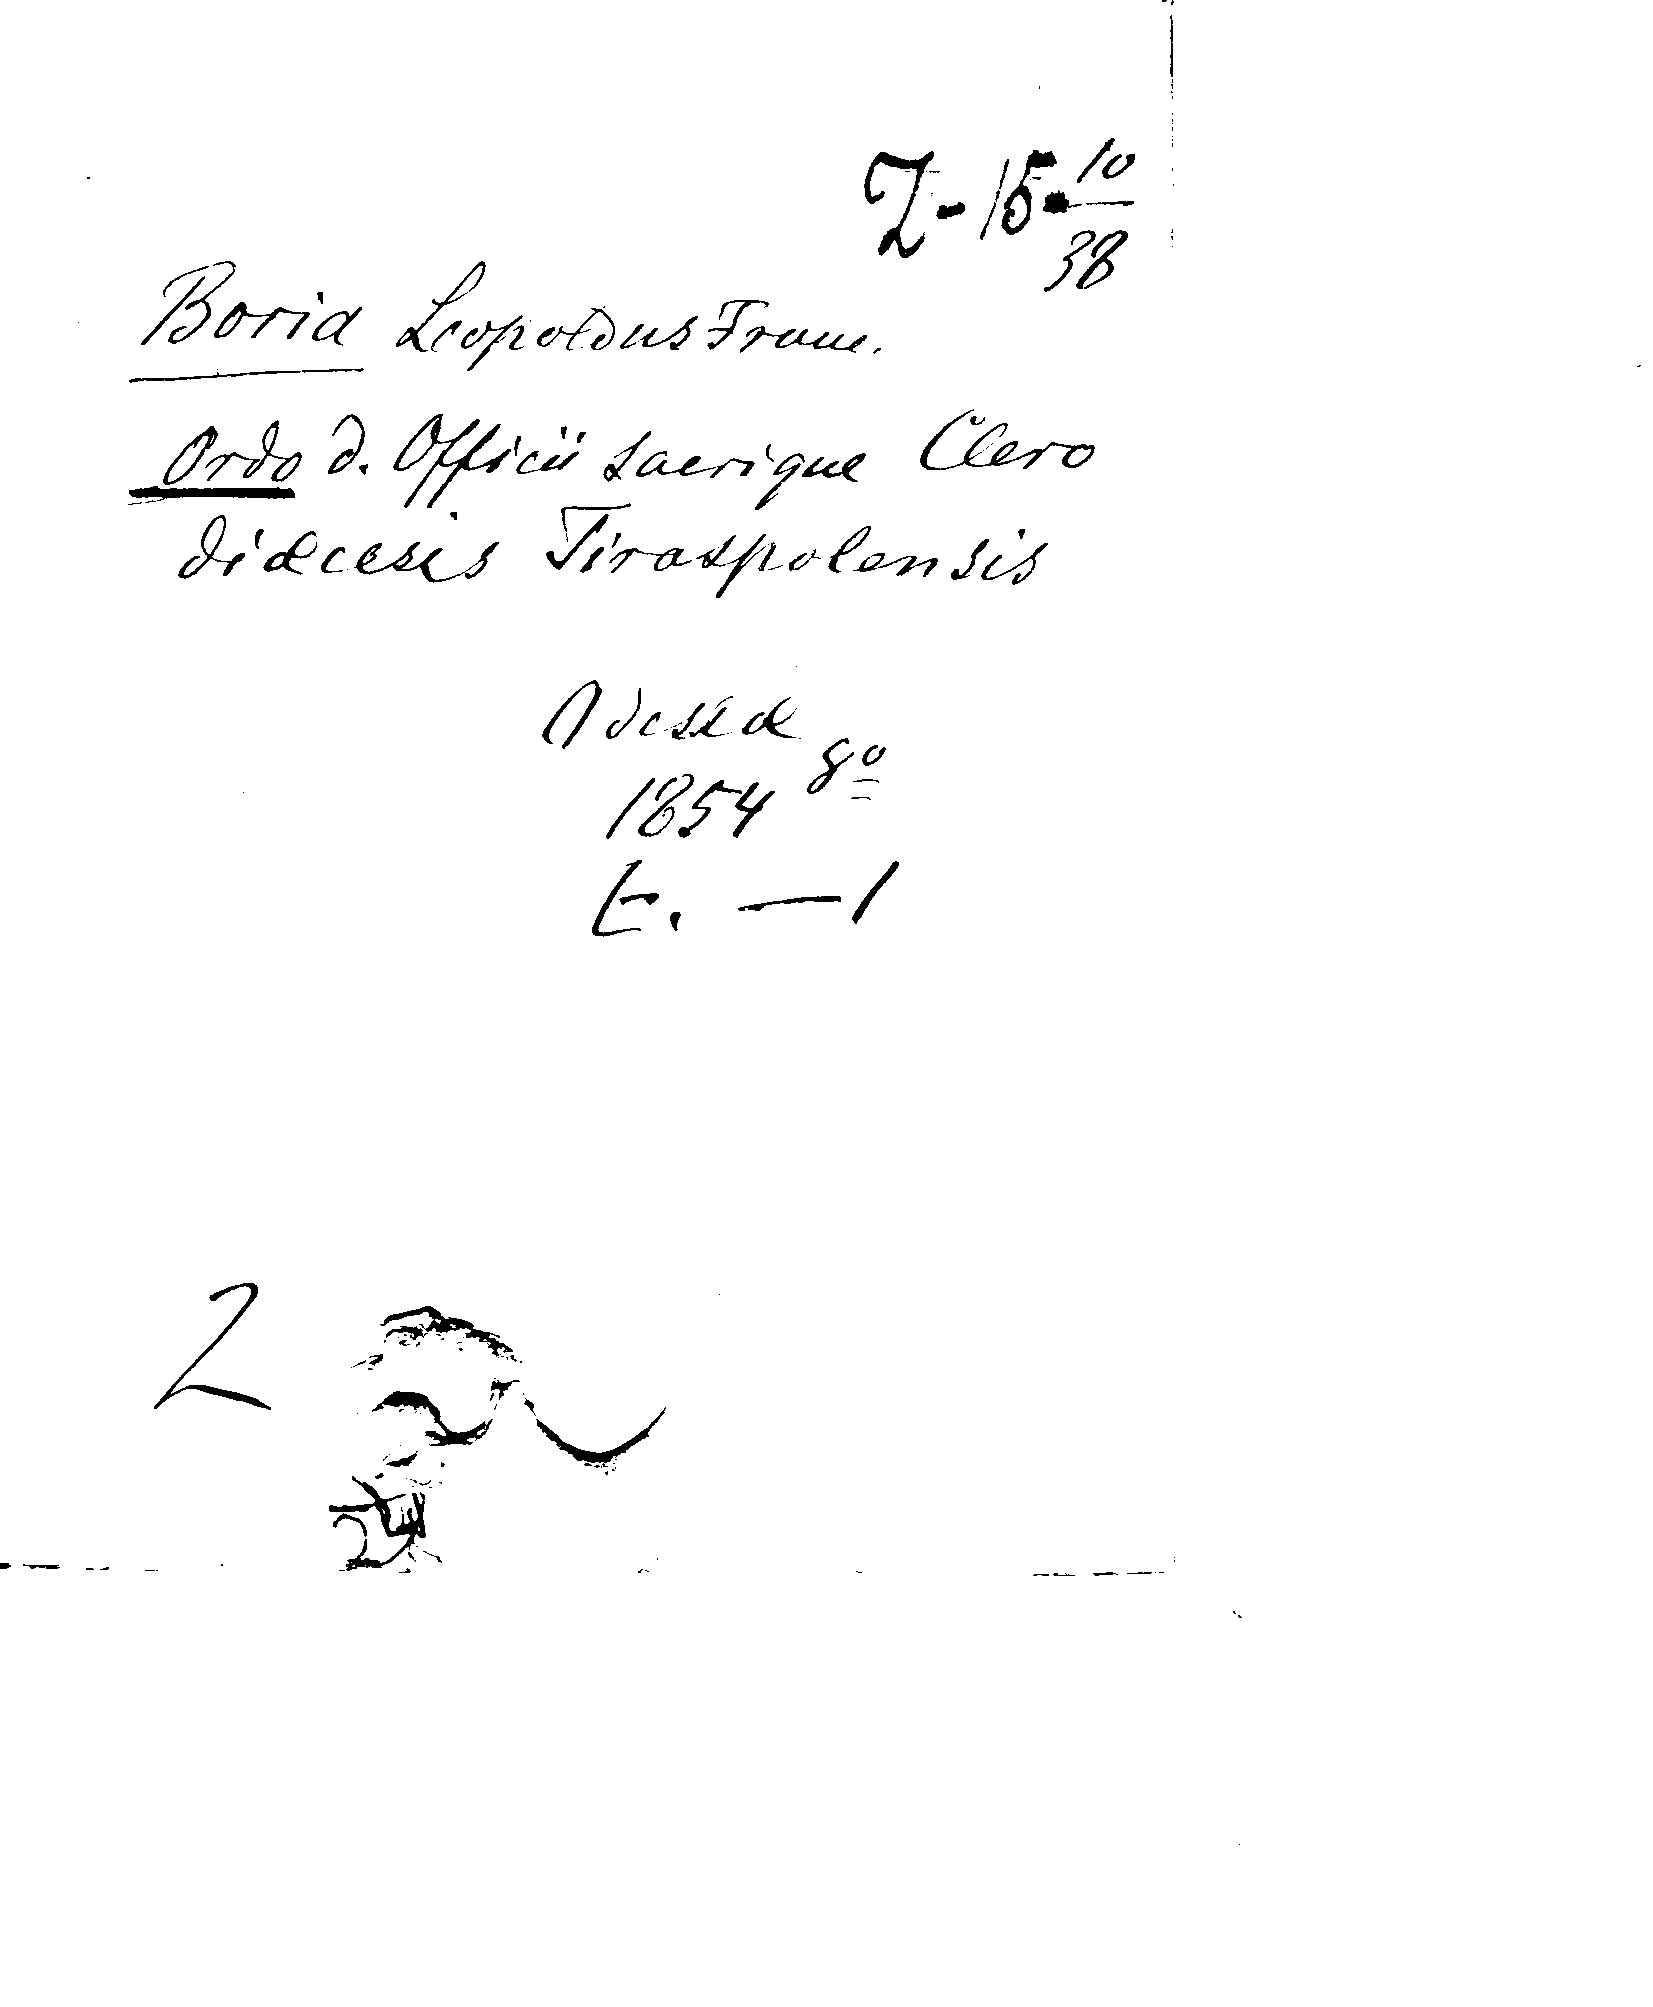 Z - 15 - 10/38
Boria Leopoldus Franc.
Ordo d. Officii sacrique Clero
diœcesis Tiraspolensis
Odessæ
8º
1854
E. — 1
2